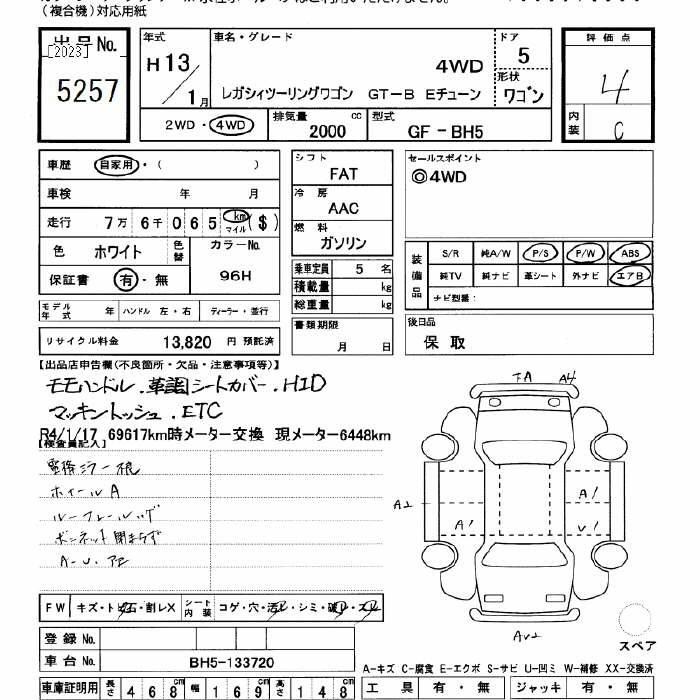 （複合機）対応用紙
出品No.
[2023]
5257
年式
H13/1月
車名・グレード
4WD
レガシィツーリングワゴン GT-B Eチューン
ドア
5
形状
ワゴン
評価点
4
内装
C
2WD・4WD
排気量 2000 cc
型式 GF-BH5
車歴 自家用・( )
車検 年 月
走行 7万6千065 km マイル ($)
色 ホワイト 色替
カラーNo. 96H
保証書 有・無
モデル年式 年 ハンドル 左・右 ディーラー・並行
リサイクル料金 13,820 円 預託済
シフト
FAT
冷房
AAC
燃料
ガソリン
乗車定員 5 名
積載量 kg
総重量 kg
書類期限
月 日
セールスポイント
◎4WD
装備品
S/R 純A/W P/S P/W ABS
純TV 純ナビ 革シート 外ナビ エアB
ナビ型番：
後日品
保取
【出品店申告欄(不良箇所・欠品・注意事項等)】
モモハンドル.革調シートカバー.HID
マッキントッシュ.ETC
R4/1/17 69617km時メーター交換 現メーター6448km
【検査員記入】
ホイールA
A A4
A2 A1 A1
U1
FW キズ・トビ石・割レX シート内装 コゲ・穴・汚レ・シミ・破レ・スレ
登録No.
車台No. BH5-133720
車庫証明用 長さ 468cm 幅 169cm 高さ 148cm
スペア
A-キズ C-腐食 E-エクボ S-サビ U-凹ミ W-補修 XX-交換済
工具 有・無 ジャッキ 有・無